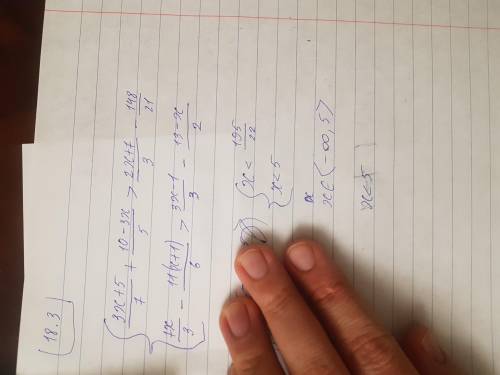 18.3
{ (3x+5)/7 + (10-3x)/5 > (2x+7)/3 - 148/21
{ 7x/3 - 11(x+1)/6 > (3x-1)/3 - (13-x)/2
{ x < 195/22
{ x < 5
x ∈ (-∞, 5)
x < 5